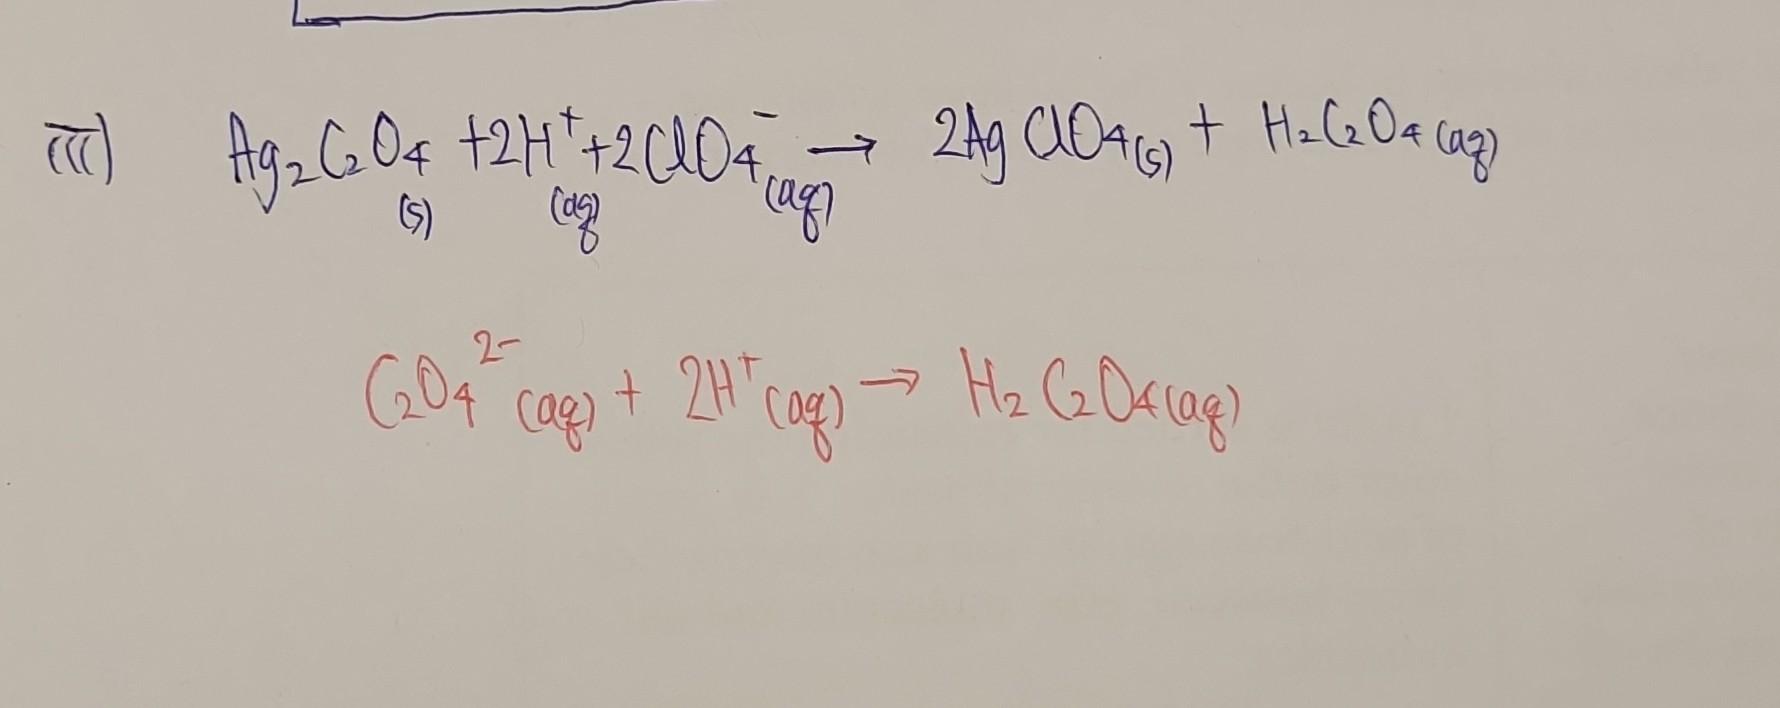 iii) Ag₂C₂O₄(s) + 2H⁺(aq) + 2ClO₄⁻(aq) → 2AgClO₄(s) + H₂C₂O₄(aq)
C₂O₄²⁻(aq) + 2H⁺(aq) → H₂C₂O₄(aq)